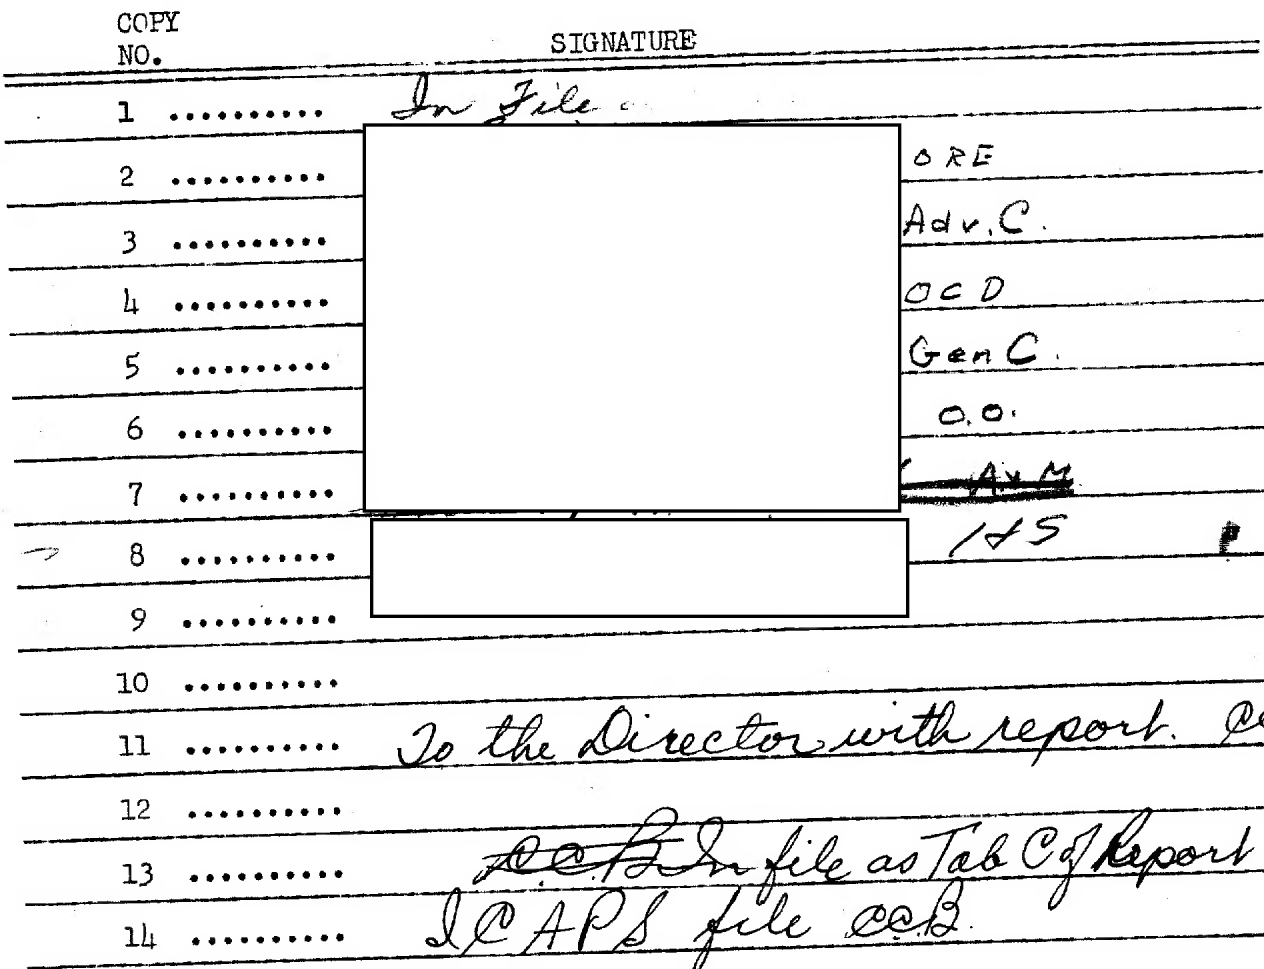 COPY
NO.
SIGNATURE
1 .......... In File
2 .......... ORE
3 .......... Adv. C.
4 .......... OCD
5 .......... Gen C.
6 .......... O.O.
7 .......... A&M
8 ..........
9 ..........
10 ..........
11 .......... To the Director with report.
12 ..........
13 .......... C.C.B. In file as Tab C of Report
14 .......... ICAPS file CCB.